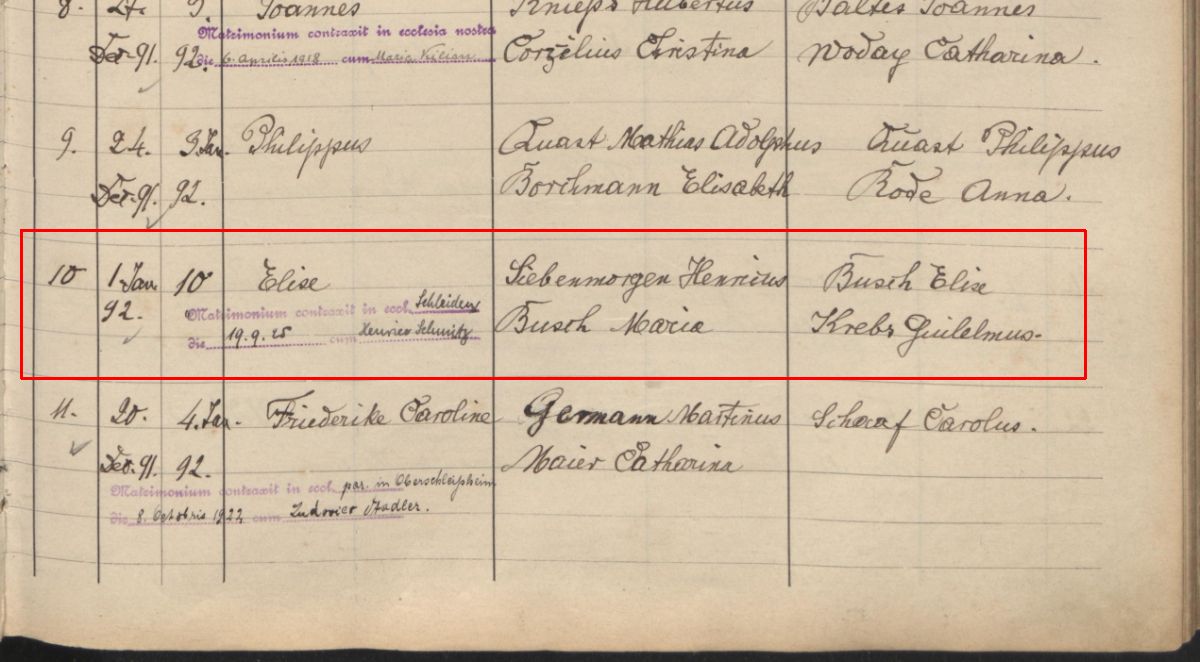 8. 24. 3. Joannes Knieps Hubertus Baltes Joannes
Matrimonium contraxit in ecclesia nostra
Dez. 91. 92. die 6. Aprilis 1918 cum Maria Kilian Corzelius Christina Woday Catharina.
9. 24. 3. Jan. Philippus Quast Mathias Adolphus Quast Philippus
Dez. 91. 92. Borchmann Elisabeth Rode Anna.
10 1. Jan. 10 Elise Siebenmorgen Henricus Busch Elise
92. Matrimonium contraxit in eccl. Schleiden Busch Maria Krebs Guilelmus.
die 19.9.25 cum Henrico Schmitz
11. 20. 4. Jan. Friederike Caroline Germann Martinus Schaaf Carolus.
Dez. 91. 92. Maier Catharina
Matrimonium contraxit in eccl. par. in Oberschleißheim
die 8. Octobris 1922 cum Ludovico Stadler.